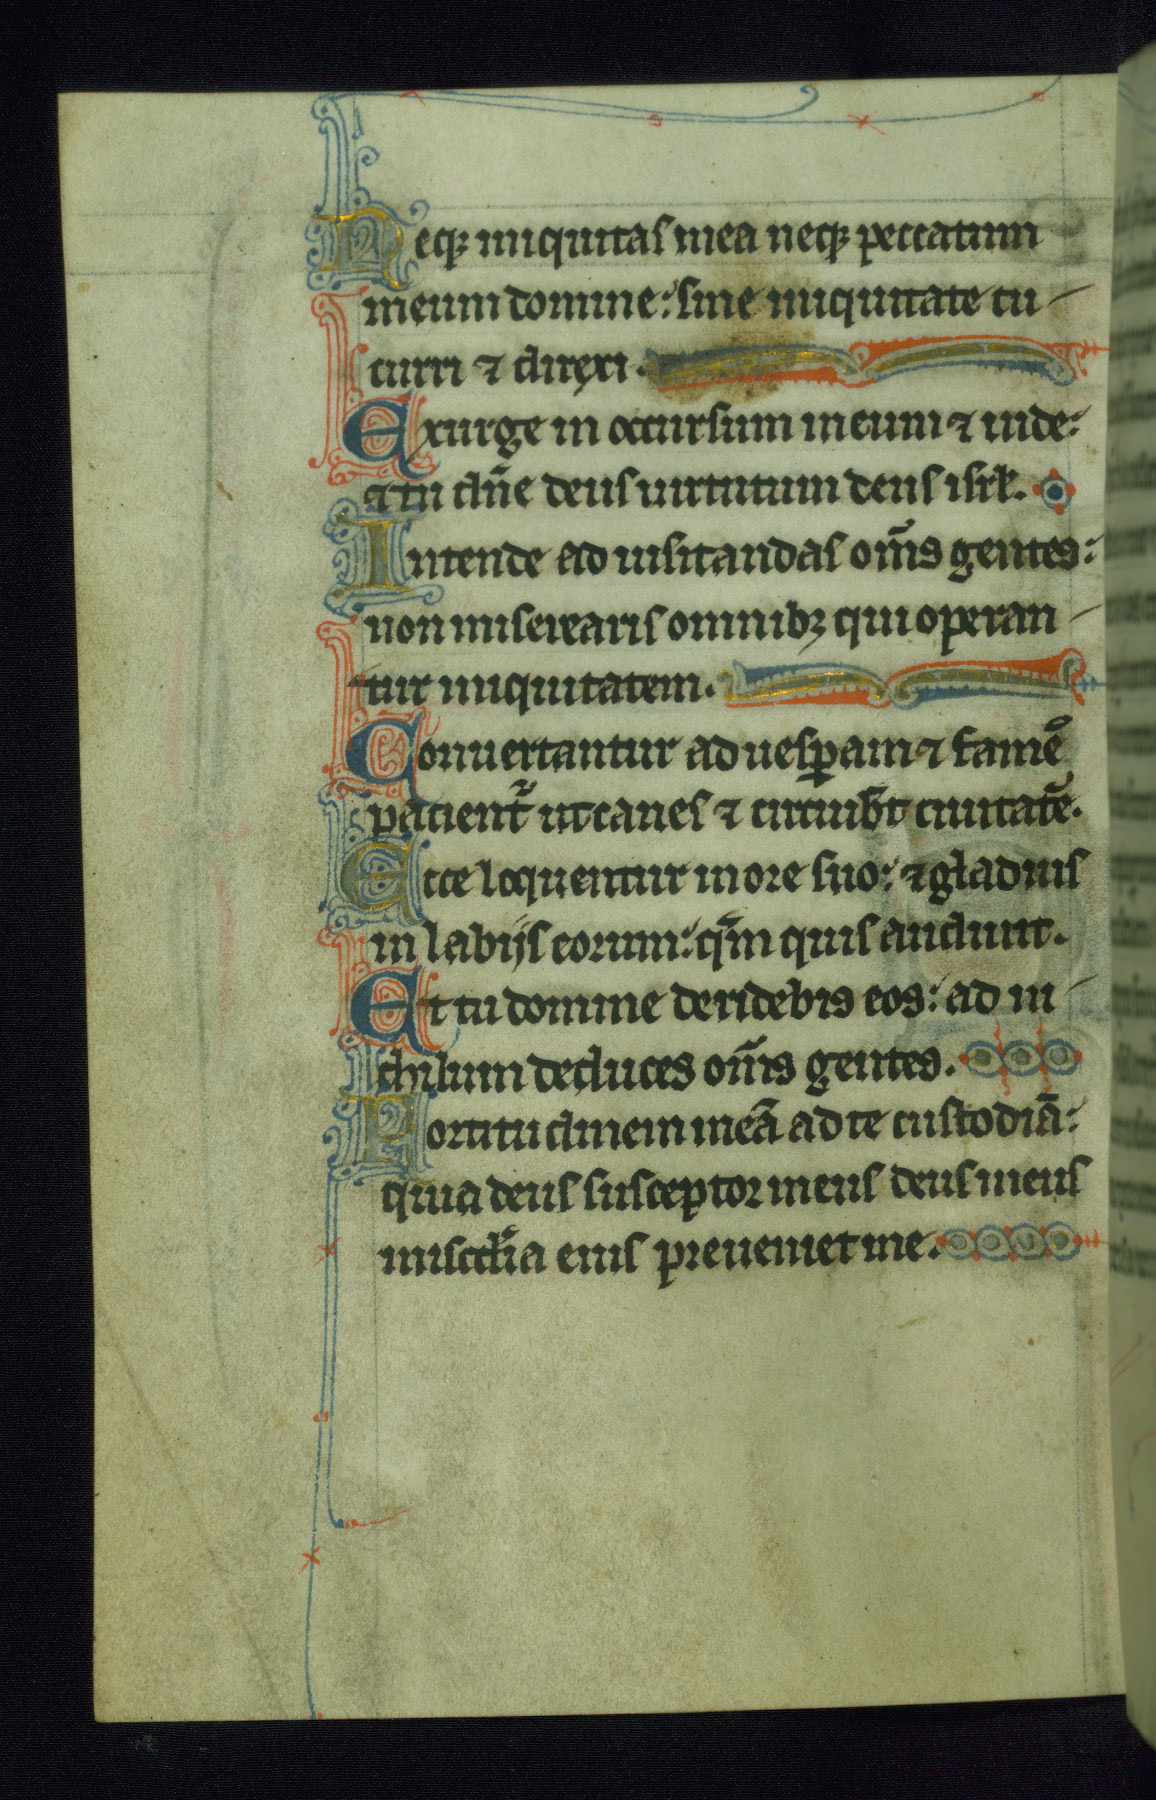 Neqꝫ iniquitas mea neqꝫ peccatum
meum domine: sine iniquitate cu
curri ⁊ direxi.
Exurge in occursum meum ⁊ uide:
⁊ tu dn̄e deus uirtutum deus isrl̄.
Intende ad uisitandas om̄s gentes:
non miserearis omnibꝫ qui operan
tur iniquitatem.
Conuertantur ad uesꝑam ⁊ famē
patient᷑ ut canes ⁊ circuib̄t ciuitatē.
Ecce loquentur in ore suo: ⁊ gladius
in labijs eorum: qm̄ quis audiuit.
Et tu domine deridebis eos: ad ni
chilum deduces om̄s gentes.
Fortitudinem meā ad te custodiā:
quia deus susceptor meus deus meus
miscd̄ia eius preueniet me.